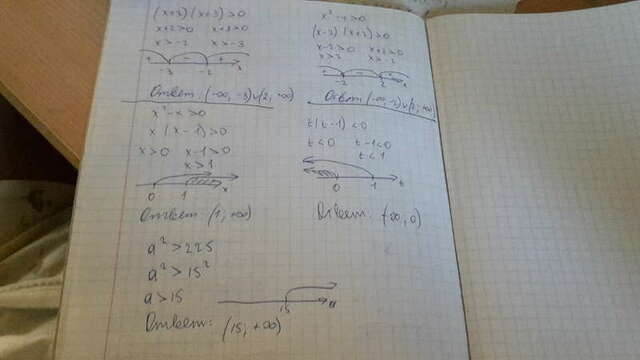 (x+2)(x+3)>0
x+2>0 x+3>0
x>-2 x>-3
+ - +
-3 -2 x
Ответ: (-∞, -3)∪(2, +∞)
x²-4>0
(x-2)(x+2)>0
x-2>0 x+2>0
x>2 x>-2
-2 2
Ответ: (-∞, -2)∪(2, +∞)
x²-x>0
x(x-1)>0
x>0 x-1>0
x>1
0 1 x
Ответ (1, +∞)
t(t-1)<0
t<0 t-1<0
t<1
0 1 t
Ответ: (-∞, 0)
a²>225
a²>15²
a>15
15 a
Ответ: (15, +∞)